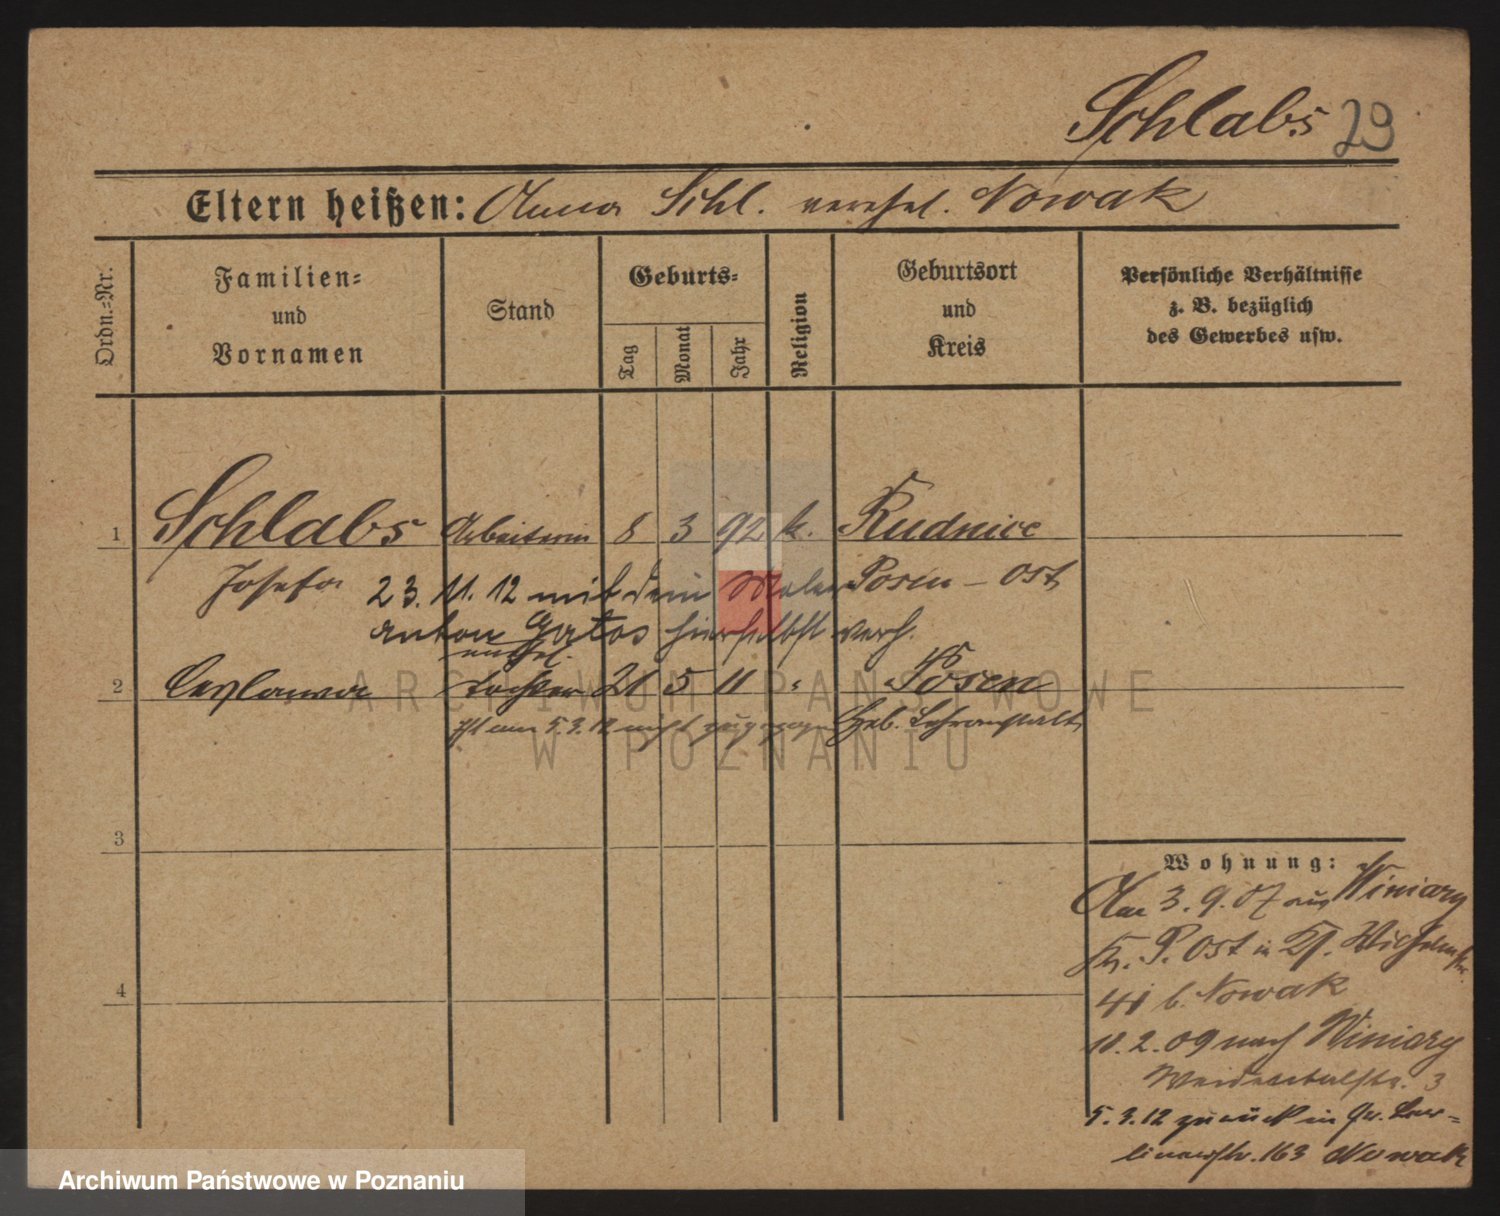 Schlabs 29
Eltern heißen: Anna Schl. verehel. Nowak
Ordn.-Nr.
Familien-
und
Vornamen
Stand
Geburts-
Tag
Monat
Jahr
Religion
Geburtsort
und
Kreis
Persönliche Verhältnisse
z. B. bezüglich
des Gewerbes usw.
1 Schlabs Arbeiterin 8 3 92 k. Rudnicc
Josefa Posen - Ost
23. 11. 12 mit dem Maler
Anton Gatos hierselbst verh.
unehel.
2 Ceslawa Tochter 21 5 11 " Posen
ist am 5.3.12 nicht zugezogen Heb. Lehranstalt
3
4
Wohnung:
Am 3. 9. 07 aus Winiary
Kr. P. Ost in Wilhelmstr.
41 b. Nowak
10. 2. 09 nach Winiary
3
5. 3. 12 zurück in Gr. Ber-
linerstr. 163 Nowak
ARCHIWUM PAŃSTWOWE
W POZNANIU
Archiwum Państwowe w Poznaniu